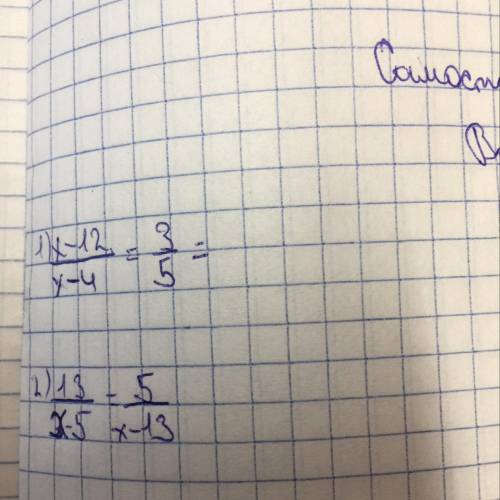 Самост
В
1) x-12/x-4 = 3/5 =
2) 13/x-5 = 5/x-13